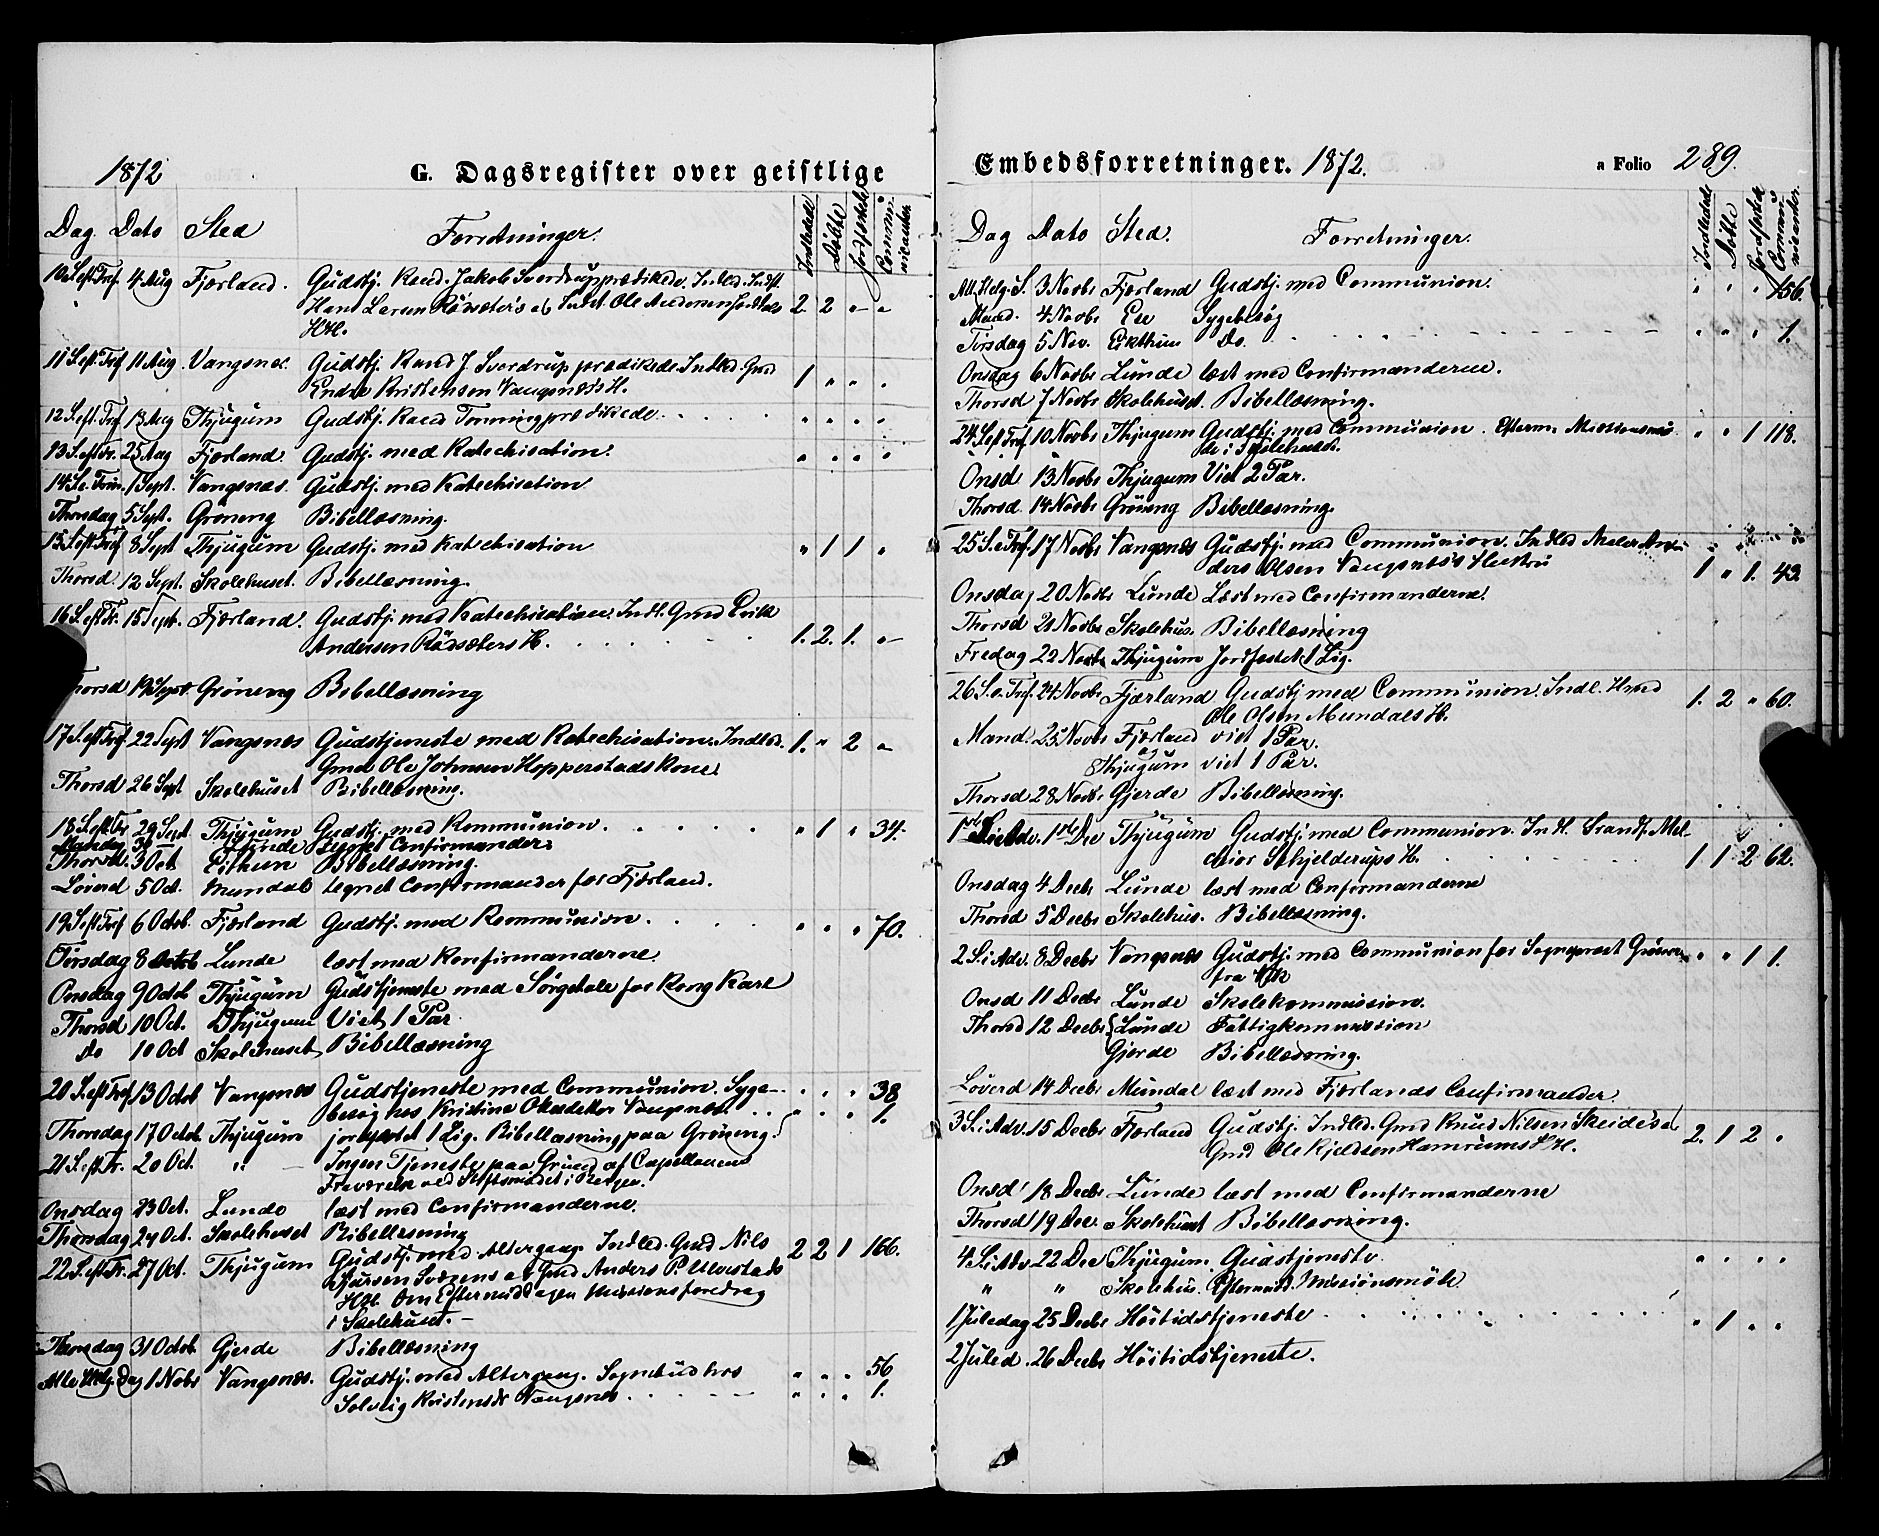 1872
G. Dagsregister over geistlige
Dag Dato Sted Forretninger. Indledede Döbte Jordfæstede Communicanter
10 S. eft. Tref. 4 Aug Fjærland. Gudstj. Kand. Jakob Sverdrup prædikede. Indled. Indst.
Hans Larsen Rödsæter's og Indst. Ole Andersen 2 2 " "
HH.
11 S. eft. Tref 11 Aug Vangsnæs. Gudstj. Kand J. Sverdrup prædikede. Indled. Gmd
Endre Kristensen Vangsnæs's H. 1 " " "
12 S. eft. Tref. 18 Aug Thjugum Gudstj. Kand Tonning prædikede. " " " "
13 S. eft Tr. 25 Aug Fjærland. Gudstj. med Katechisation. " " " "
14 S. e. Trin. 1 Sept. Vangsnæs. Gudstj. med Katechisation
Thorsdag 5 Sept. Gröneng Bibellæsning.
15 S. eft Tref 8 Sept Thjugum Gudstj. med Katechisation " 1 1 "
Thorsd. 12 Sept. Skolehuset. Bibellæsning.
16 S. eft Tr. 15 Sept. Fjærland. Gudstj. med Katechisation. Indl. Gmd Eirik
Andersen Rödsæters H. 1. 2. 1. "
Thorsd 19 Sept. Gröneng Bibellæsning
17 S. eft Tref 22 Sept Vangsnæs Gudstjeneste med Katechisation. Indled. 1. " 2 "
Gmd Ole Johnsen Hopperstads Kone.
Thorsd 26 Sept Skolehuset Bibellæsning.
18 S. eft Tr 29 Sept. Thjugum Gudstj. med Kommunion. " 1 " 34.
Mandag 30 — Lunde Tegnet Confirmander.
Thorsd. 3 Oct. Eithun Bibellæsning.
Löverd 5 Oct. Mundal tegnet Confirmander for Fjærland.
19 S. eft Tref 6 Octob. Fjærland Gudstj. med Kommunion. " " " 70.
Tirsdag 8 Octob Lunde læst med Konfirmanderne.
Onsdag 9 Octob Thjugum Gudstjeneste med Sörgetale for Kong Karl
Thorsd 10 Oct. Thjugum Viet 1 Par
Do 10 Oct Skolehuset Bibellæsning
20 S. eft Tref 13 Octob Vangsnæs Gudstjeneste med Communion. Syge- " " " 38
besög hos Kristine Olsdatter Vangsnæs. " " " 1.
Thorsdag 17 Octob. Thjugum jordfæstet 1 Lig. Bibellæsning paa Gröneng.
21 S. eft Tr. 20 Oct. " — Ingen Tjeneste paa Grund af Capellanens
Fraværelse ved Stiftsmödet i Bergen.
Onsdag 23 Oct. Lunde læst med Confirmanderne.
Thorsdag 24 Oct. Skolehuset Bibellæsning
22 S. eft Tr. 27 Oct. Thjugum Gudstj. med Altergang. Indled. Gmd Nils 2 2 1 166.
Sværens og Gmd Anders P. Ulvestads
HH. Om Eftermiddagen Missionsforedrag
i Skolehuset. —
Thorsdag 31 Octob. Gjerde Bibellæsning
Alle Helg. Dag 1 Nobr Vangsnæs. Gudstj. med Altergang. Sognebud hos " " " 56
Solveig Kristensdr Vangsnæs. " " " 1.
Embedsforretninger. 1872. a Folio 289.
Dag Dato Sted. Forretninger. Indledede Döbte Jordfæstede Communicanter.
All. Helg. S. 3 Novbr Fjærland Gudstj. med Communion. " " " 156.
Mand. 4 Novbr Ese Sygebesög
Tirsdag 5 Nov. Eikthun Do. " " " 1.
Onsdag 6 Novbr Lunde læst med Confirmanderne.
Thorsd 7 Novbr Skolehuset. Bibellæsning.
24. S. eft Tref 10 Novbr Thjugum Gudstj. med Communion. Efterm. Missionsmö- " " 1 118.
de i Skolehuset.
Onsd 13 Novbr Thjugum Viet 2 Par.
Thorsd 14 Novbr Gröneng Bibellæsning.
25 S. e Tref. 17 Novbr Vangsnæs Gudstj. med Communion. Indled Maler An-
ders Olsen Vangsnæs's Hustru 1 " 1. 43.
Onsdag 20 Novbr Lunde Læst med Confirmanderne.
Thorsd 21 Novbr Skolehus. Bibellæsning
Fredag 22 Novbr Thjugum Jordfæstet 1 Lig.
26 S. e. Tref. 24 Novbr Fjærland Gudstj med Communion. Indl. Hmd
Ole Olsen Mundals H. 1. 2 " 60.
Mand. 25 Novbr Fjærland viet 1 Par.
og Thjugum viet 1 Par.
Thorsd 28 Novbr Gjerde Bibellæsning.
1ste S. i Adv. 1ste Dec Thjugum Gudstj med Communion. Indl. Strands. Mel-
chior Schjelderups H. 1 1 2 62.
Onsdag 4 Decbr Lunde læst med Confirmanderne
Thorsd 5 Decbr Skolehus. Bibellæsning.
2 S. i Adv. 8 Decbr Vangsnæs Gudstj. med Communion for Sogneprest " " 1 1.
fra Vik
Onsd 11 Decbr Lunde Skolekommission.
Thorsd 12 Decbr { Lunde Fattigkommission
Gjerde Bibellæsning.
Löverd 14 Decbr Mundal læst med Fjærlands Confirmander.
3 S. i Adv. 15 Decbr Fjærland Gudstj. Indled. Gmd Knud Nilsen Skeide's og 2. 1 2 "
Gmd Ole Kjeldsen Hamrums HH.
Onsd 18 Decbr Lunde læst med Confirmanderne
Thorsd 19 Dec. Skolehuset Bibellæsning.
4 S. i Adv 22 Dec Thjugum Gudstjeneste. " " " "
" " Skolehus. Eftermid. Missionsmöte.
1 Juledag 25 Decbr Höitidstjeneste. " 1 " "
2 Juled. 26 Decbr Höitidstjeneste.